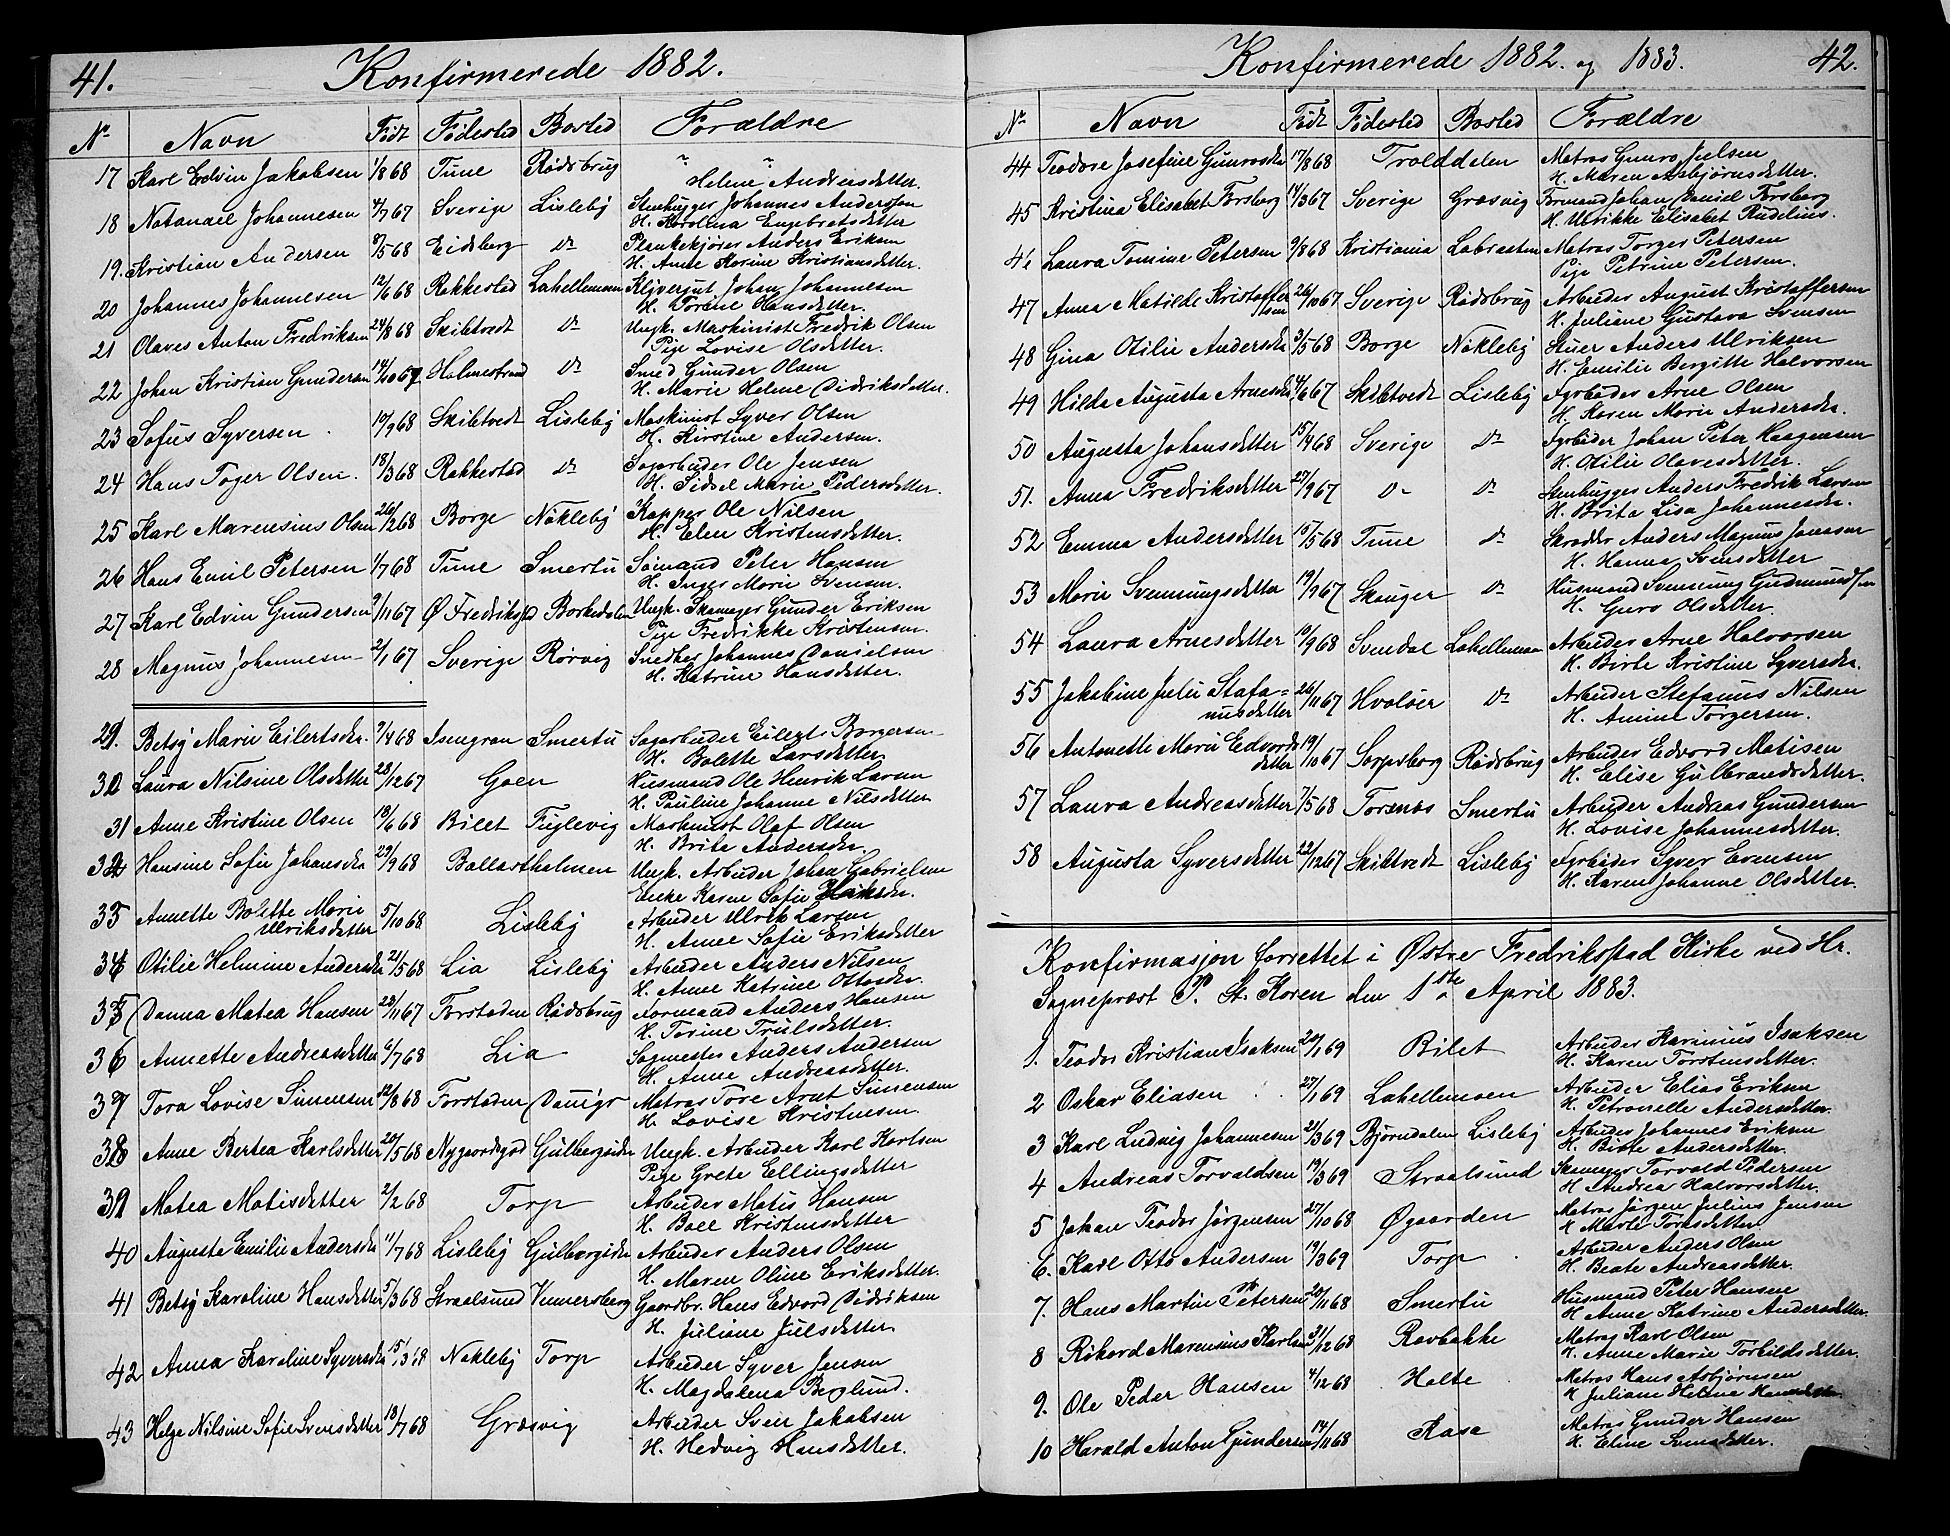 41.
Konfirmerede 1882.
No Navn Født Fødested Bosted Forældre
17 Karl Edvin Jakobsen 1/8 68 Tune Rødsbrug " "
Helene Andersdetter.
18 Natanael Johannesen 4/7 67 Sverige Lisleby Stenhugger Johannes Andersson
H. Karolina Engebretsdetter
19. Kristian Andersen 8/5 68 Eidsberg do Plankekjører Anders Eriksen
H. Anne Karine Kristiansdetter.
20 Johannes Johannesen 12/6 68 Rakkestad Lahellemoen Johan Johannesen
H. Torine Hansdetter.
21 Olaves Anton Fredriksen 24/8 68 Skibtvedt do Ungk. Maskinist Fredrik Olsen
Pige Lovise Olsdetter.
22 Johan Kristian Gundersen 14/10 67 Holmestrand do Smed Gunder Olsen
H. Marie Helene Didriksdetter.
23 Sofus Syversen. 10/9 68 Skibtvedt Lisleby Maskinist Syver Olsen
H. Kirstine Andersen.
24 Hans Toger Olsen. 18/3 68 Rakkestad do Sagarbeider Ole Jensen
H. Sidsel Marie Pedersdetter.
25 Karl Marensius Olsen 26/2 68 Borge Nökleby Kapper Ole Nilsen
H. Elen Kristensdetter.
26 Hans Emil Petersen 1/7 68 Tune Smertu Sømand Peter Hansen
H. Inger Marie Svensen.
27 Karl Edvin Gundersen 9/11 67 Ø Fredriksstad Borkedalen Ungk. Skomager Gunder Eriksen
Pige Fredrikke Kristensen.
28 Magnus Johannesen 2/1 67 Sverige Rørvig Snedker Johannes Danielsen
H. Katrine Hansdetter.
29. Betsy Marie Eilertsdr. 7/4 68 Isengran Smertu Sagarbeider Eilert Borgersen
H. Bolette Larsdetter
30 Laura Nilsine Olsdetter 28/12 67 Goen Husmand Ole Henrik Larsen
H. Pauline Johanne Nilsdetter
31 Anne Kristine Olsen 18/6 68 Bilet Fuglevig Maskinist Olaf Olsen
H. Brite Andersdr.
32 Hansine Sofie Johansdr 29/9 68 Ballastholmen Ungk. Arbeider Johan Gabrielsen
Enke Karen Sofie
33 Annette Bolette Marie 5/10 68 Lisleby Arbeider Ulrik Larsen
Ulriksdetter H. Anne Sofie Eriksdetter
34 Otilie Helmine Andersdr 21/5 68 Lia Lisleby Arbeider Anders Nilsen
H. Anne Katrine Ottosdr.
35 Danna Matea Hansen 28/11 67 Forstaden Rødsbrug Formand Anders Hansen
H. Torine Trulsdetter.
36 Annette Andreasdetter 6/7 68 Lia Sagmester Anders Andersen
H. Anne Andreasdetter.
37 Tora Lovise Simensen 12/8 68 Forstaden Matros Tore Arnt Simensen
H. Lovise Kristensen.
38 Anne Bertea Karlsdetter 20/5 68 Nygaardsgad Gulbergsiden Ungk. Arbeider Karl Karlsen
Pige Grete Ellingsdetter
39 Matea Matisdetter 2/2 68 Torp Arbeider Matis Hansen
H. Boel Kristensdetter
40 Auguste Emilie Andersdr 11/7 68 Lisleby Gulbergsiden Arbeider Anders Olsen
H. Maren Oline Eriksdetter.
41 Betsy Karoline Hansdetter 5/3 68 Straalsund Vennersberg Gaardbr. Hans Edvard Didriksen
H. Juliane Julsdetter
42 Anna Karoline Syversdr 15/3 68 Nökleby Torp Arbeider Syver Jensen
H. Magdalena Berglund.
43 Helga Nilsine Sofie Svensdetter 18/7 68 Græsvig Arbeider Sven Jakobsen
H. Hedvig Hansdetter.
Konfirmerede 1882. og 1883. 42.
No Navn Født Fødested Bosted Forældre
44 Teodore Josefine Gunrosdr 17/8 68 Trolddalen Matros Gunro Julsen
H. Maren Asbjørnsdetter.
45 Kristina Elisabet Forsberg 14/3 67 Sverige Græsvig Formand Johan Daniel Forsberg
H. Ulrikke Elisabet Rudelius.
46 Laura Tomine Petersen 9/8 68 Kristiania Labraaten Matros Torger Petersen
Pige Petrine Petersen.
47 Anna Matilde Kristoffersen 26/10 67 Sverige Rødsbrug Arbeider August Kristoffersen
H. Juliane Gustava Svensen
48 Gina Otilie Andersdr 3/5 68 Borge Nökleby Stuer Anders Ulriksen
H. Emilie Bergitte Halvorsen
49 Hilda Augusta Arnesdr 14/6 67 Skibtvedt Lisleby Fyrbøder Arne Olsen
H. Karen Marie Andersdr.
50 Augusta Johansdetter 15/4 68 Sverige do Fyrbøder Johan Peter Haagensen
H. Otilie Olavesdetter.
51. Anna Fredriksdetter 27/9 67 do do Stenhugger Anders Fredrik Larsen
H. Brita Lisa Johannesdr.
52 Emma Andersdetter 15/5 68 Tune do Skrædder Anders Magnus Jonassen
H. Hanna Svensdetter
53 Marie Svenningsdetter 19/9 67 Skouger do Husmand Svenning Gudmundsen
H. Guro Olsdetter.
54 Laura Arnesdetter 10/9 68 Svendal Lahellemoen Arbeider Arne Halvorsen
H. Birte Kristine Syversdr.
55 Jakobine Julie Stafa= 26/11 67 Hvaløer do Arbeider Stefanus Nilsen
nusdetter H. Amine Torgersen.
56 Antonette Marie Edvards 19/10 67 Sarpsborg Rødsbrug Arbeider Edvard Matisen
detter H. Elise Gulbrandsdetter.
57 Laura Andreasdetter 7/5 68 Torsnæs Smertu Arbeider Andreas Gundersen
H. Lovise Johannesdetter.
58 Augusta Syversdetter 22/12 67 Skibtvedt Lisleby Fyrbøder Syver Evensen
H. Karen Johanne Olsdetter.
Konfirmasjon forrettet i Østre Fredriksstad Kirke ved Hr.
Sognepræst P. St. Koren den 1ste April 1883.
1. Teodor Kristian Isaksen 20/1 69 Bilet Arbeider Karinius Isaksen
H. Karen Torstensdetter.
2 Oskar Eliasen 27/1 69 Lahellemoen Arbeider Elias Eriksen
H. Petronelle Andersdetter.
3 Karl Ludvig Johannesen 21/3 69 Bjørndalen Lisleby Arbeider Johannes Eriksen
H. Birte Andersdetter.
4 Andreas Torvaldsen 19/3 69 Straalsund Skomager Torvald Pedersen
H Andrea Halvorsdetter.
5 Johan Teodor Jørgensen 27/10 68 Øgaarden Matros Jørgen Julius Jensen
H Marte Torasdetter
6. Karl Otto Andersen 19/3 69 Torp Arbeider Anders Olsen
H. Beate Andreasdetter.
7. Hans Martin Petersen 20/11 68 Smertu Husmand Peter Hansen
H Anne Katrine Andersdetter.
8 Rikard Marensius Karlsen 31/12 68 Ravbakke Matros Karl Olsen
H. Anne Marie Torbildsdetter.
9. Ole Peder Hansen 4/12 68 Holte Matros Hans Asbjørnsen
H Juliane Helene
10 Harald Anton Gundersen 14/11 68 Kase Matros Gunder Hansen
H. Eline Svensdetter.